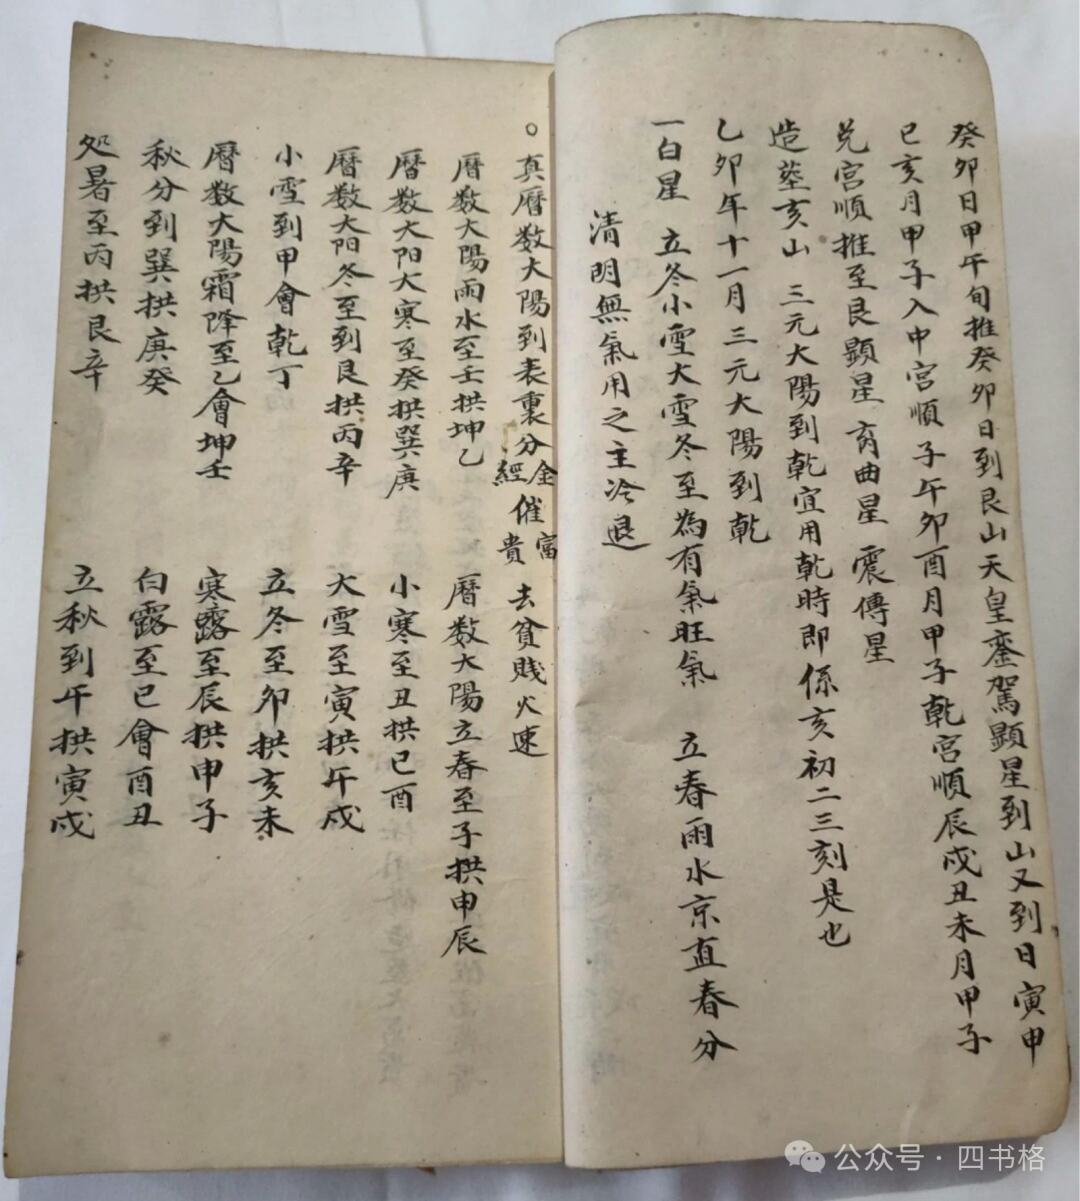 癸卯日甲午旬推癸卯日到艮山天皇銮駕顕星到山又到日寅申
巳亥月甲子入中宮順子午卯酉月甲子乾宮順辰戌丑未月甲子
兑宮順推至艮顕星 育曲星 震傳星
造塟亥山 三元大陽到乾宜用乾時即係亥初二三刻是也
乙卯年十一月三元大陽到乾
一白星 立冬小雪大雪冬至為有氣旺氣 立春雨水京直春分
清明無氣用之主冷退
○真曆数大陽到表裏分金經催富貴 去貧賤火速
曆数大陽雨水至壬拱坤乙 曆数大陽立春至子拱申辰
曆数大阳大寒至癸拱巽庚 小寒至丑拱巳酉
曆数大阳冬至到艮拱丙辛 大雪至寅拱午戌
小雪到甲會乾丁 立冬至卯拱亥未
曆数大陽霜降至乙會坤壬 寒露至辰拱申子
秋分到巽拱庚癸 白露至巳會酉丑
处暑至丙拱艮辛 立秋到午拱寅戌
公众号·四书格